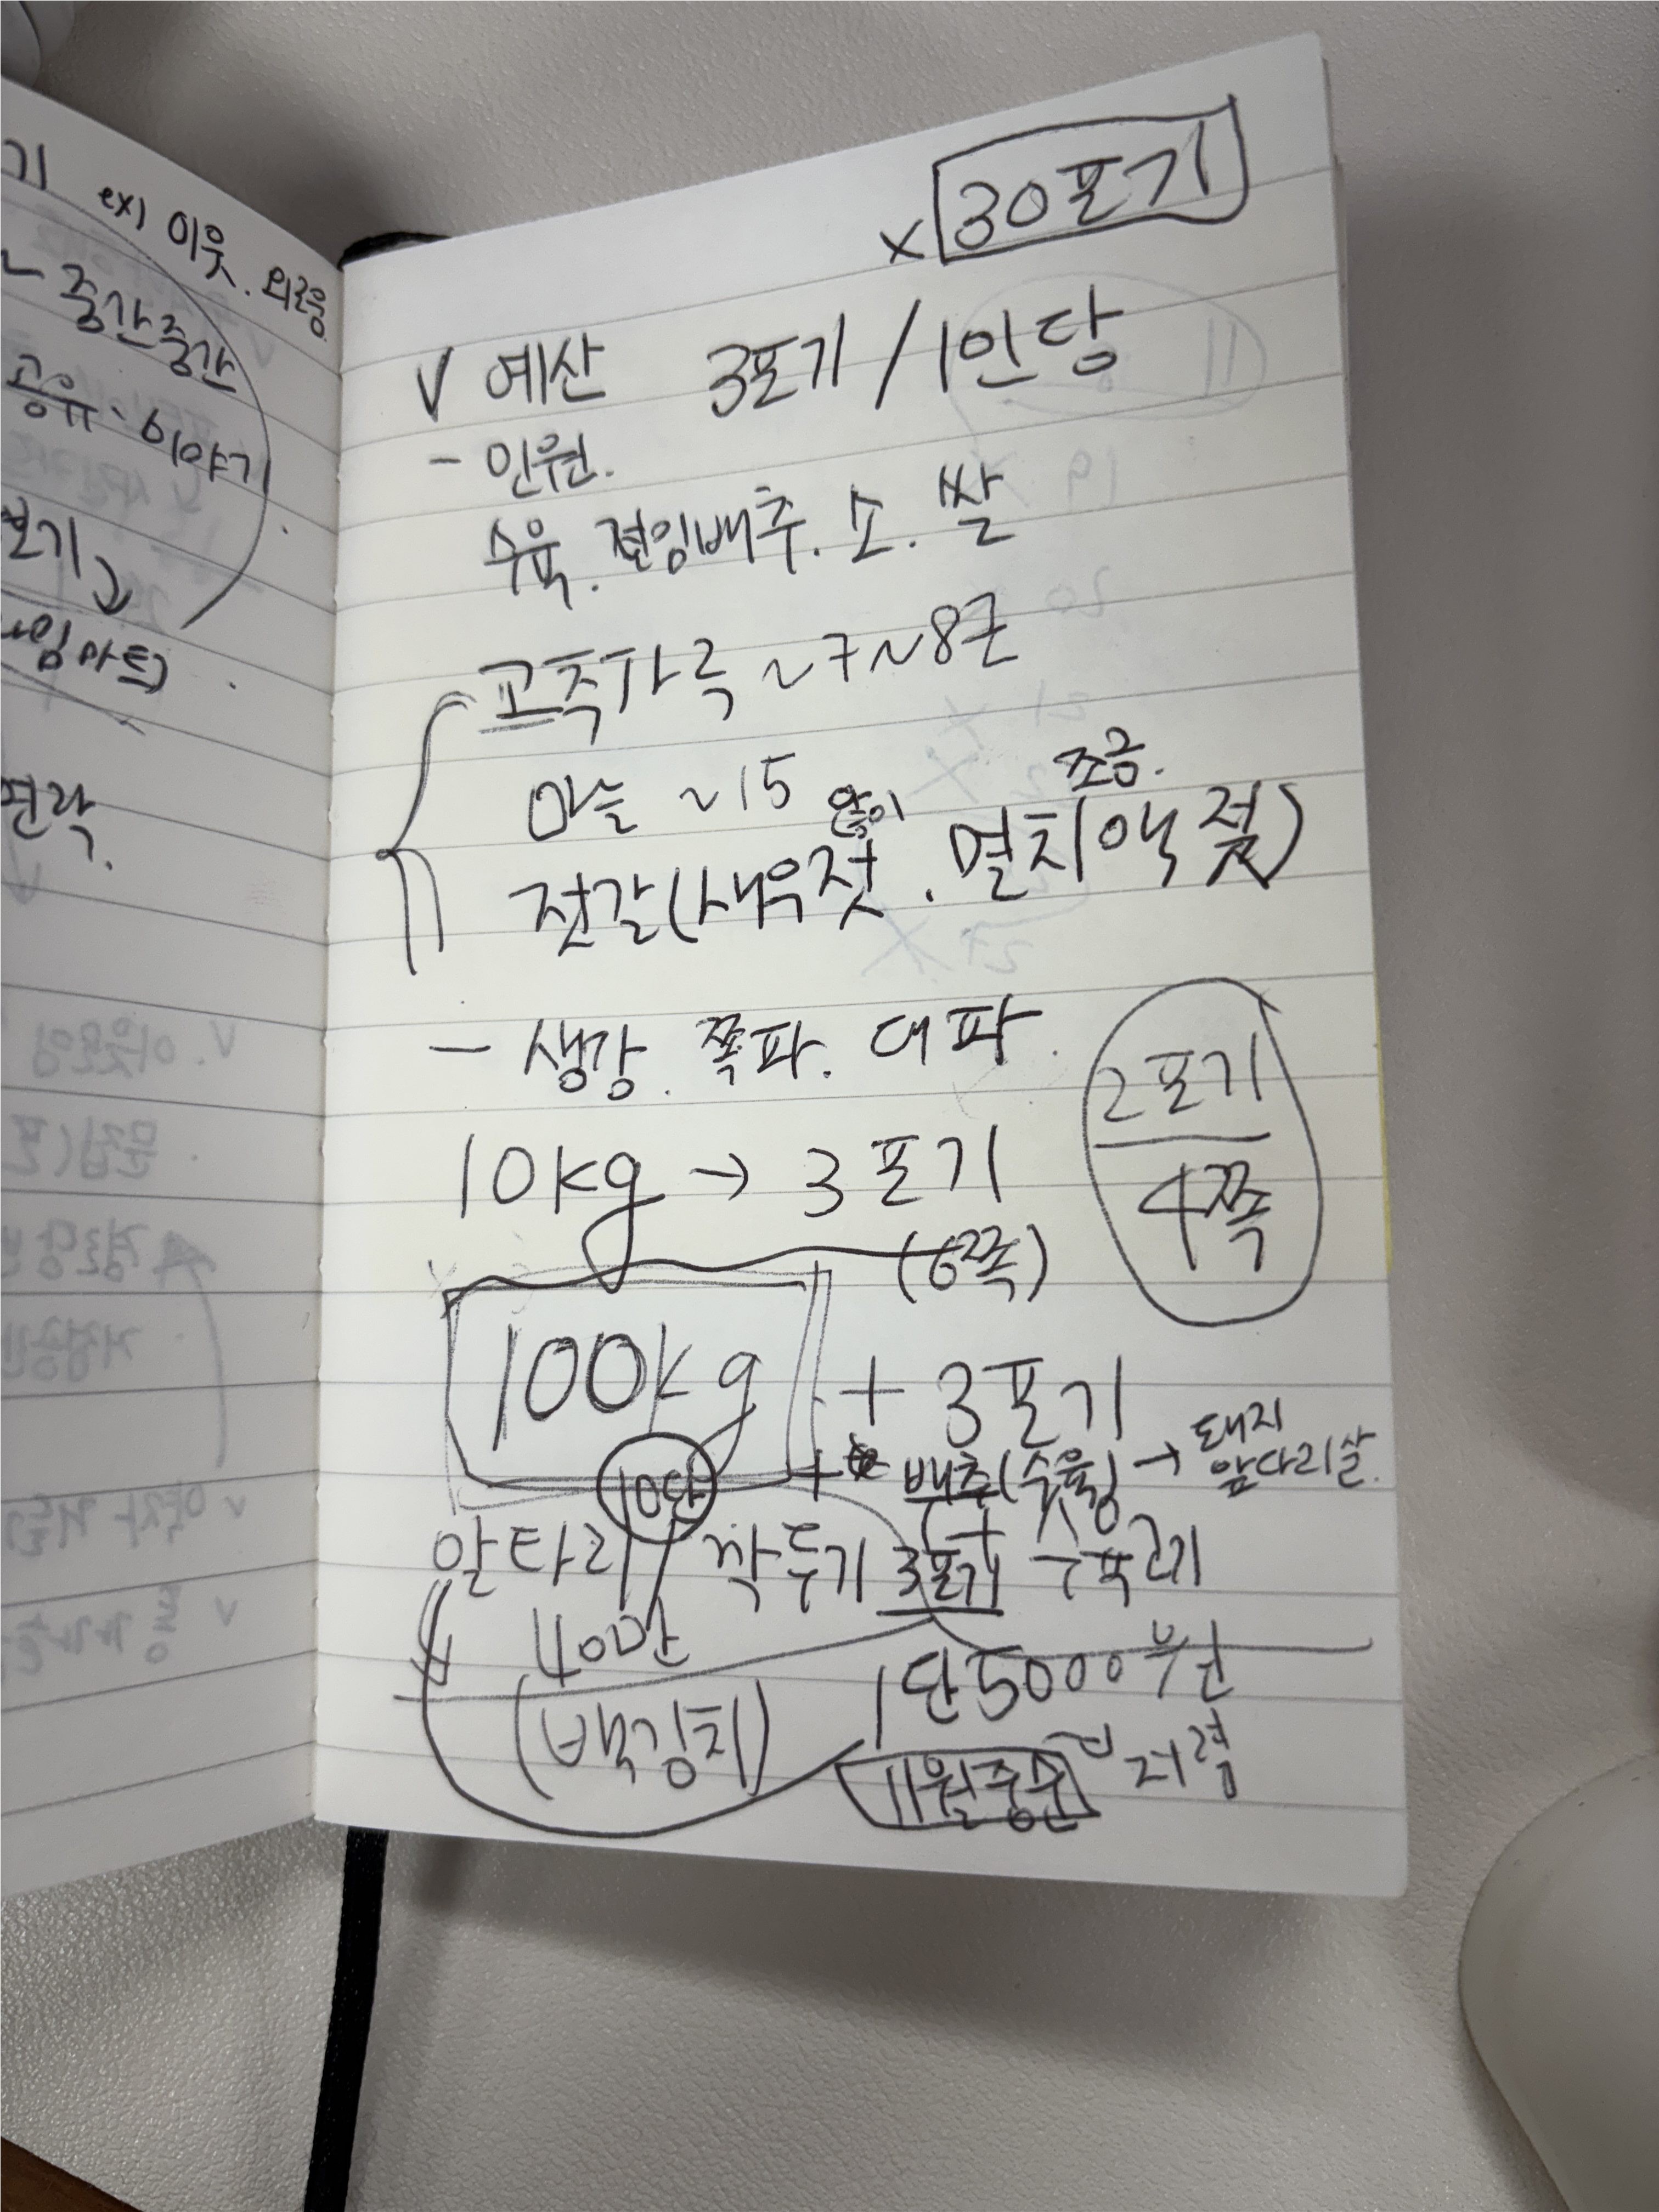 기 ex) 이웃. 외로움
중간중간
공유· 이야기
보기
임마트)
연락.
× 30포기
V 예산 3포기 / 1인당
- 인원.
수육. 절임배추. 소. 쌀
고춧가루 ~7~8근
마늘 ~15
많이 조금.
젓갈(새우젓. 멸치액젓)
- 생강. 쪽파. 대파.
2포기
4쪽
10kg → 3포기
(6쪽)
100kg + 3포기
+ 배추(수육) → 돼지
앞다리살.
10단
알타리 / 깍두기 3포기
40만
1단 5000원
(백김치)
11월중순 저렴